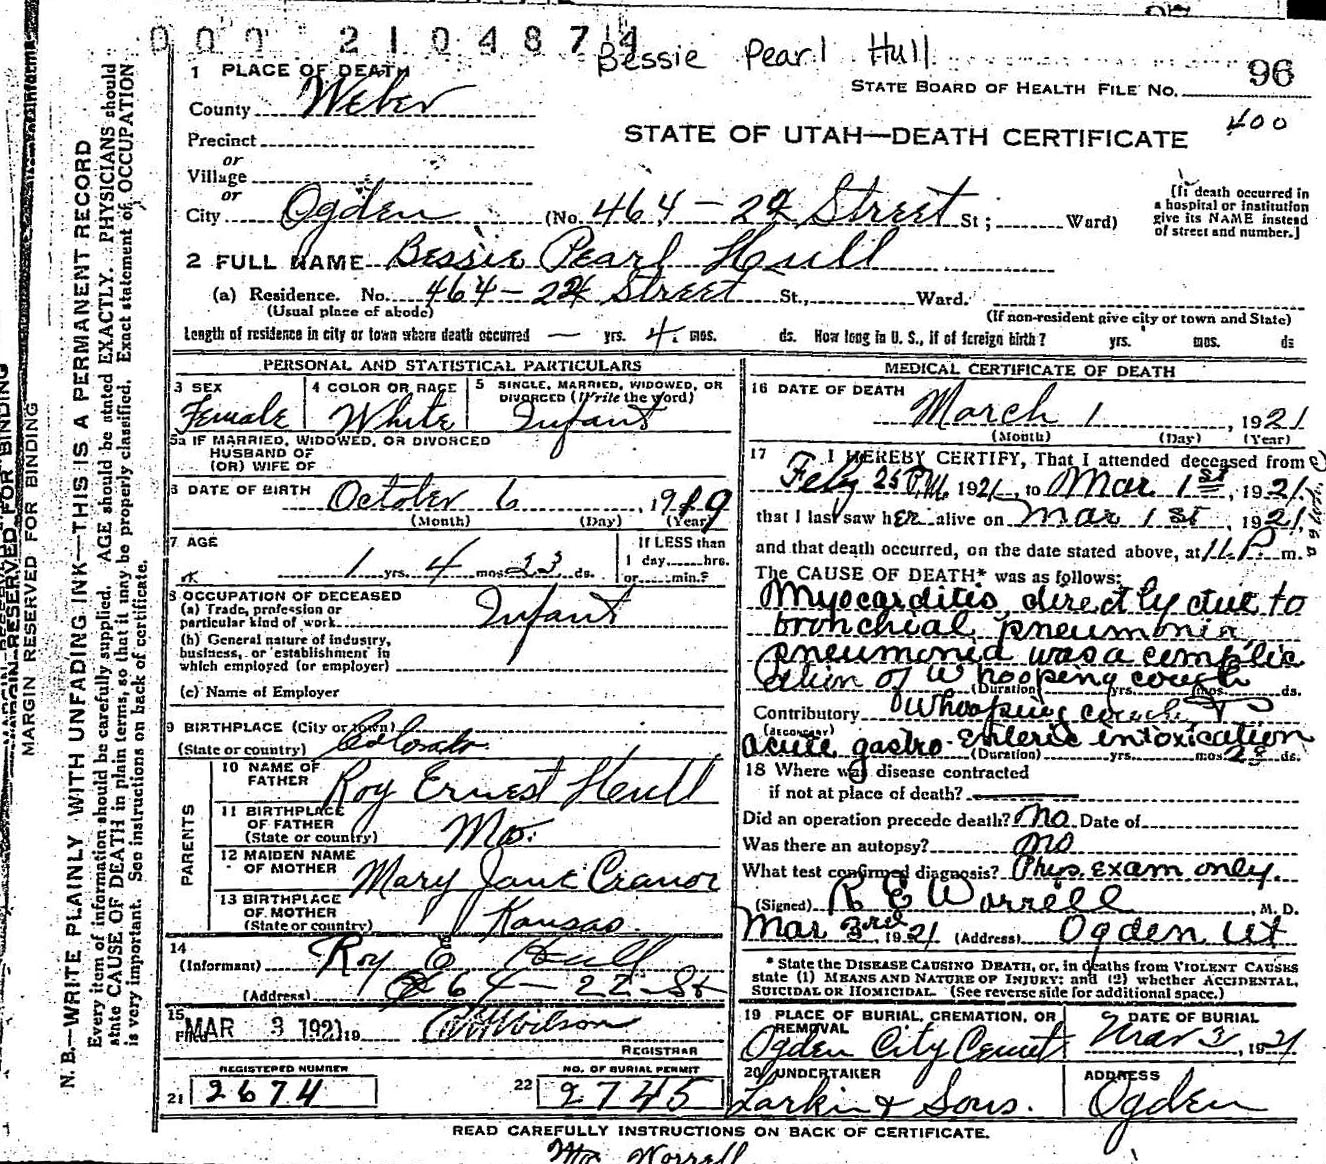 000 2104874
Bessie Pearl Hull
1 PLACE OF DEATH
County Weber
STATE BOARD OF HEALTH FILE NO. 96
400
STATE OF UTAH—DEATH CERTIFICATE
Precinct
or
Village
or
City Ogden (No. 464 - 22 Street St; Ward)
[If death occurred in
a hospital or institution
give its NAME instead
of street and number.]
2 FULL NAME Bessie Pearl Hull
(a) Residence. No. 464 - 22 Street St., Ward.
(Usual place of abode) (If non-resident give city or town and State)
Length of residence in city or town where death occurred — yrs. 4 mos. ds. How long in U. S., if of foreign birth? yrs. mos. ds
PERSONAL AND STATISTICAL PARTICULARS
3 SEX 4 COLOR OR RACE 5 SINGLE, MARRIED, WIDOWED, OR
DIVORCED (Write the word)
Female White Infant
5a IF MARRIED, WIDOWED, OR DIVORCED
HUSBAND OF
(OR) WIFE OF
6 DATE OF BIRTH October 6, 1919
(Month) (Day) (Year)
7 AGE If LESS than
1 yrs. 4 mos. 23 ds. 1 day hrs.
or min.?
8 OCCUPATION OF DECEASED
(a) Trade, profession or
particular kind of work Infant
(b) General nature of industry,
business, or establishment in
which employed (or employer)
(c) Name of Employer
9 BIRTHPLACE (City or town)
(State or country) Colorado
PARENTS
10 NAME OF
FATHER Roy Ernest Hull
11 BIRTHPLACE
OF FATHER
(State or country) Mo.
12 MAIDEN NAME
OF MOTHER Mary Jane Cranor
13 BIRTHPLACE
OF MOTHER
(State or country) Kansas
14
(Informant) Roy E Hull
(Address) 464 - 22 - St
15
Filed MAR 3 1921 19 Wilson
REGISTRAR
REGISTERED NUMBER NO. OF BURIAL PERMIT
21 2674 22 2745
MEDICAL CERTIFICATE OF DEATH
16 DATE OF DEATH
March 1, 1921
(Month) (Day) (Year)
17 I HEREBY CERTIFY, That I attended deceased from
Feby 25 P.M. 1921, to Mar 1st, 1921
that I last saw her alive on Mar 1st, 1921
and that death occurred, on the date stated above, at 11 P. m.
The CAUSE OF DEATH* was as follows:
Myocarditis, directly due to
bronchial pneumonia
pneumonia was a complic
ation of Whooping cough
(Duration) yrs. mos. ds.
Contributory Whooping cough
(SECONDARY)
acute gastro-enteric intoxication
(Duration) yrs. mos. 2 ds.
18 Where was disease contracted
if not at place of death?
Did an operation precede death? No Date of
Was there an autopsy? no
What test confirmed diagnosis? Phys. exam only.
(Signed) R E Worrell, M. D.
Mar 3rd, 1921 (Address) Ogden Ut
* State the DISEASE CAUSING DEATH, or, in deaths from VIOLENT CAUSES
state (1) MEANS AND NATURE OF INJURY; and (2) whether ACCIDENTAL,
SUICIDAL OR HOMICIDAL. (See reverse side for additional space.)
19 PLACE OF BURIAL, CREMATION, OR
REMOVAL
Ogden City Cemet
DATE OF BURIAL
Mar 3, 1921
20 UNDERTAKER
Larkin & Sons.
ADDRESS
Ogden
READ CAREFULLY INSTRUCTIONS ON BACK OF CERTIFICATE.
Worrell
MARGIN RESERVED FOR BINDING
N. B.—WRITE PLAINLY WITH UNFADING INK—THIS IS A PERMANENT RECORD
Every item of information should be carefully supplied. AGE should be stated EXACTLY. PHYSICIANS should
state CAUSE OF DEATH in plain terms, so that it may be properly classified. Exact statement of OCCUPATION
is very important. See instructions on back of certificate.